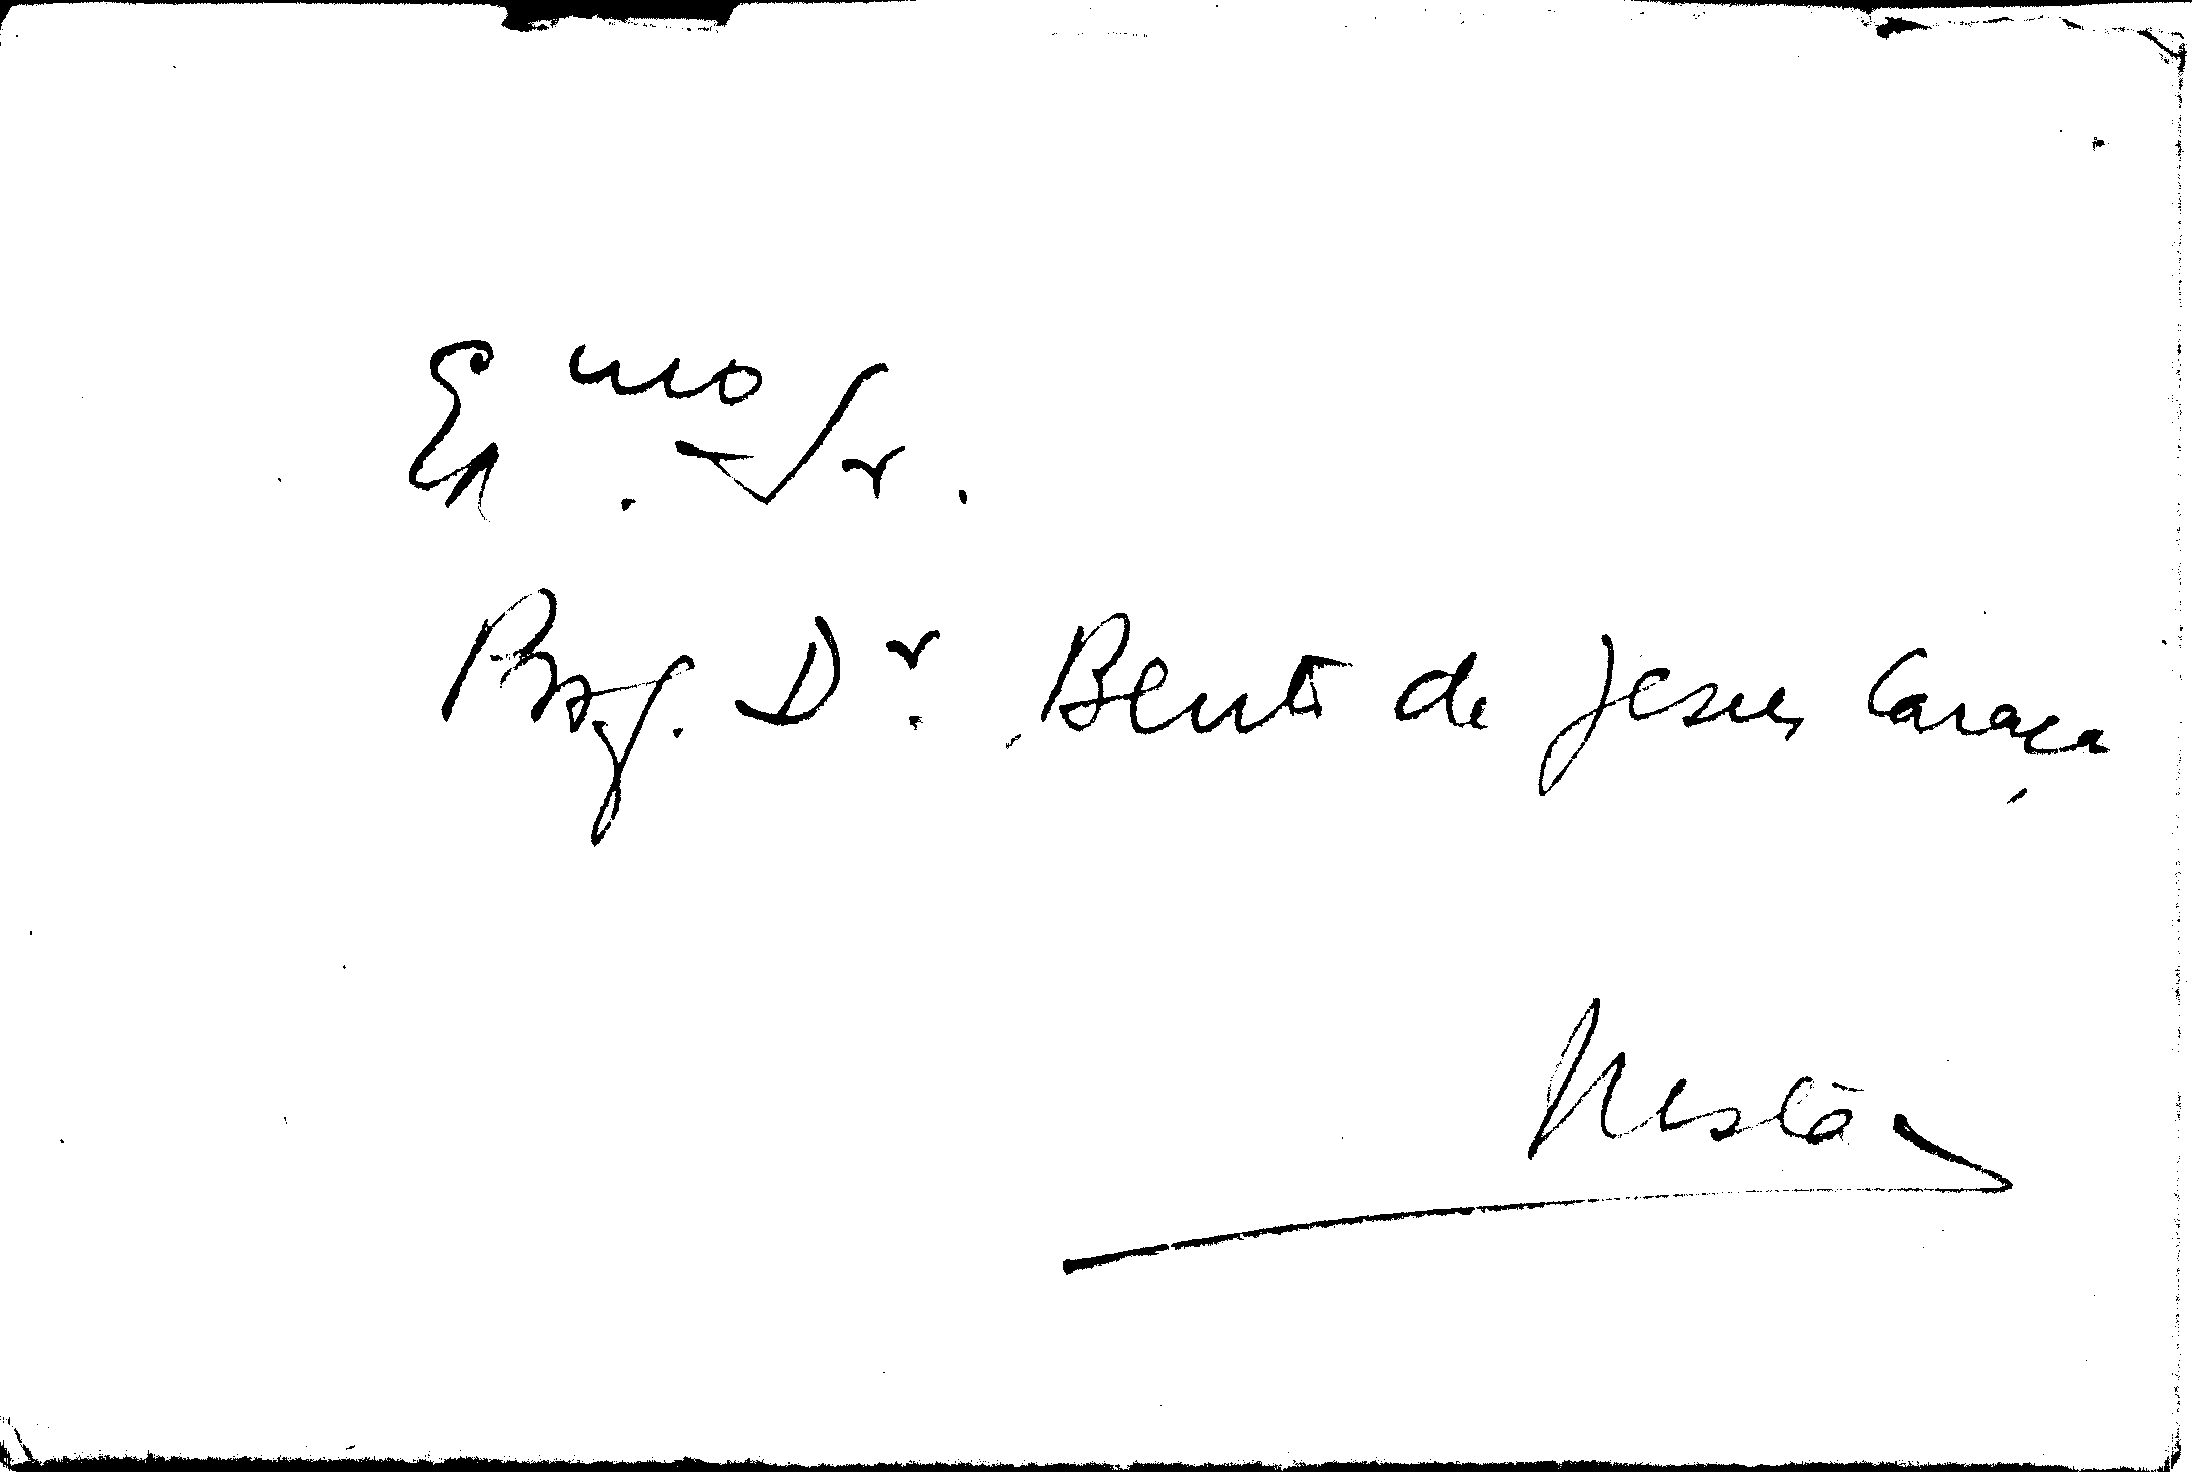 Ex.mo Sr.
Prof. Dr. Bento de Jesus Caraça